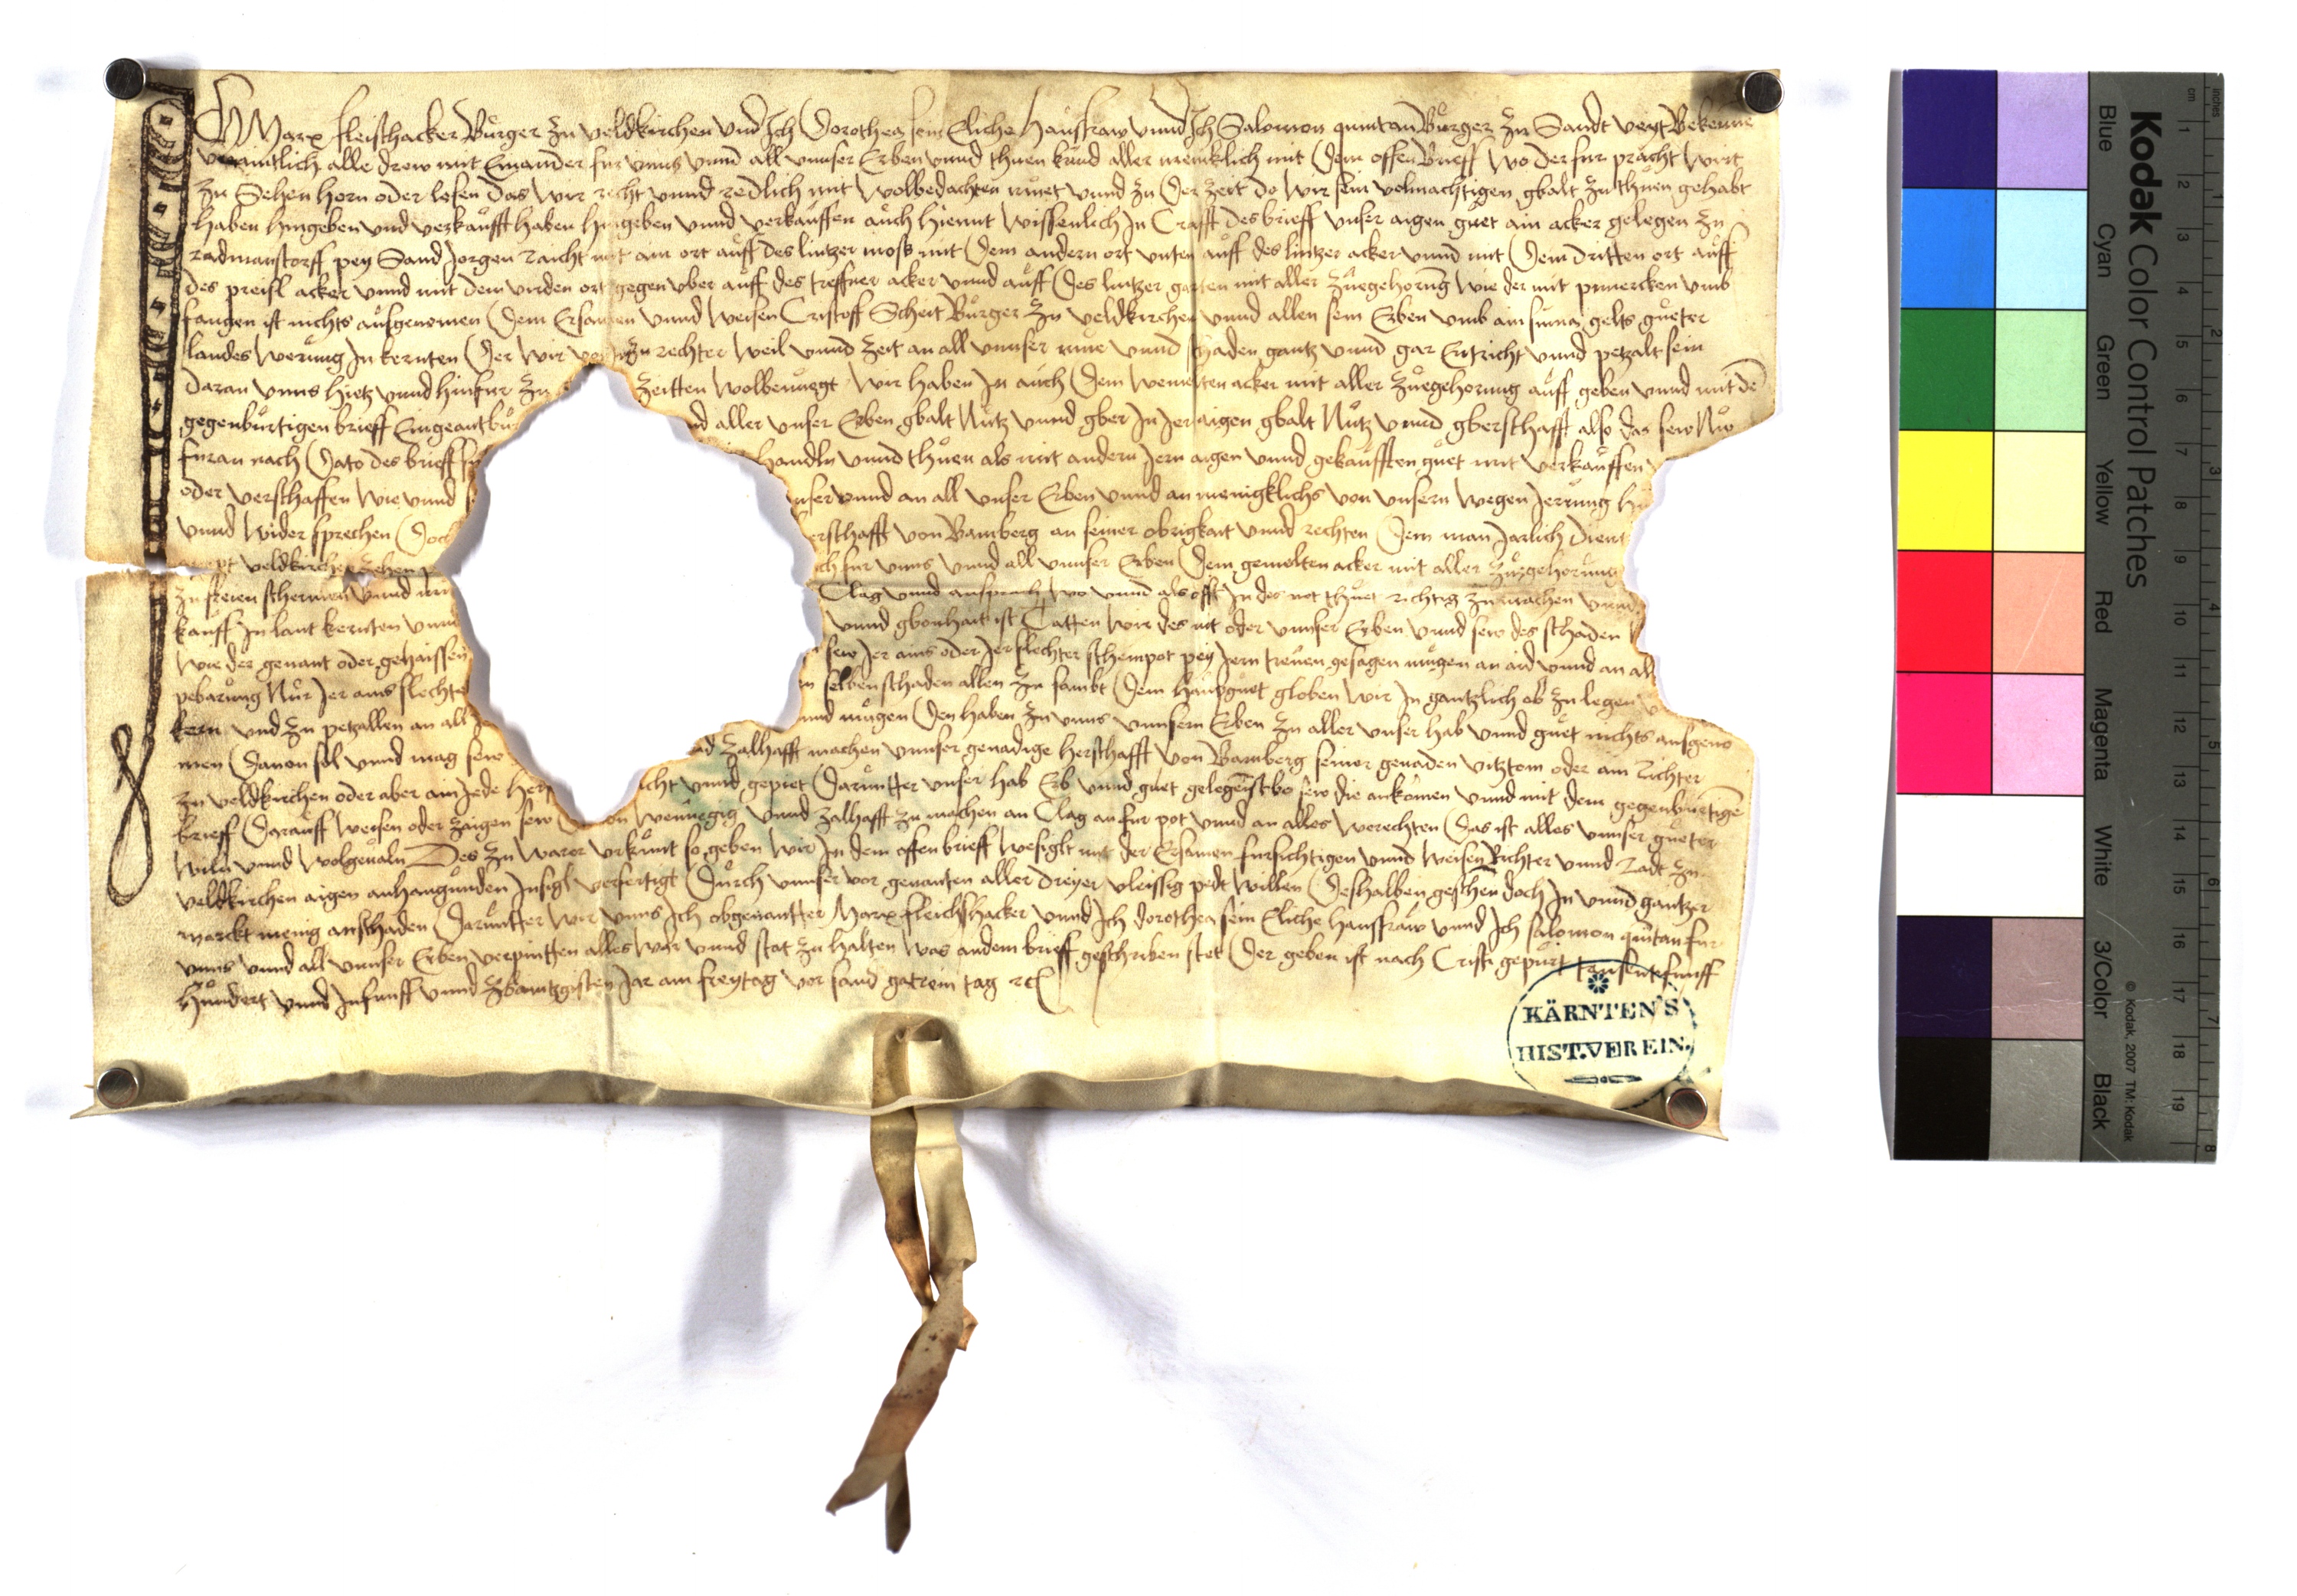 Ich Marx fleischacker Burger zu veldkirchen vnd Ich Dorothea sein Eliche hausfraw vnnd Ich Salomon quintan Burger zu Sandt veyt Bekenne
alle drew mit Einannder fur vnns vnnd all vnnser Erben vnnd thuen kund aller meniklich mit dem offen brieff wo der fur pracht wirt
zu Sehen horn oder lesen das wir recht vnnd redlich mit wolbedachten muet vnnd zu der zeit do wir sein volmachtigen gbalt zu thuen gehabt
haben hingeben vnd verkaufft haben hingeben vnnd verkauffen auch hiemit wissenlich In Crafft des brieff vnser aigen guet ain acker gelegen zu
radmanstorff pey Sand Jorgen raicht mit ain ort auff des lintzer moss mit dem andern ort vnten auff des lintzer acker vnnd mit dem dritten ort auff
des preisl acker vnnd mit dem virden ort gegen vber auff des treffner acker vnnd auff des lintzer garten mit aller zuegehorung wie der mit pimercken vmb
fangen ist nichts ausgenomen dem Ersamen vnnd weisen Cristoff Scheit Burger zu veldkirchen vnnd allen sein Erben vmb ain suma gelts gueter
landes werung In kernten der wir zu rechter weil vnnd zeit an all vnnser mue vnnd schaden gantz vnnd gar Entricht vnnd petzalt sein
daran vnns hietz vnnd hinfur zu zeitten wolbenuegt wir haben In auch dem wemelten acker mit aller zuegehorung auff geben vnnd mit de
gegenburtigen brieff Eingeantbur nd aller vnser Erben gbalt Nutz vnnd gber In Jer aigen gbalt Nutz vnnd gberschafft also das sew Nu
furan nach Dato des brieff handln vnnd thuen als mit andern Jern aigen vnnd gekaufften guet mit verkauffen
oder verschaffen wie vnnd vnser vnnd an all vnser Erben vnnd an menigklichs von vnsern wegen Jerrung
vnnd wider sprechen Doch erschafft von Bamberg an seiner obrigkait vnnd rechten dem man Jarlich dient
veldkirchen zehen ch fur vnns vnnd all vnnser Erben dem gemelten acker mit aller zuegehorung
zu freien schermen vnnd Clag vnnd anspruch wo vnnd als offt In des not thuet richtig zu machen vnnd
kauff In lant kernten vnnd vnnd gbonhait ist Tatten wir des nit oder vnnser Erben vnnd sew des schaden
wie der genant oder gehaissen sew Jer ains oder Jer slechter schempot pey Jern treuen gesagen mugen an aid vnnd an all
pebarung Nur Jer ains slechte n selben schaden allen zu sambt dem haubguet globen wir In gantzlich ab zu legen
kern vnd zu petzallen an all vnd mugen Den haben zu vnns vnnsern Erben zu aller vnser hab vnnd guet nichts ausgeno
men Dauon sol vnnd mag sew nd zalhafft machen vnnser genadige herschafft von Bamberg seiner genaden vitztom oder ain Richter
zu veldkirchen oder aber ain Jede her icht vnnd gepiet Daruntter vnser hab Erb vnnd guet gelegen ist bo sew die ankomen vnnd mit dem gegenburtigen
brieff Darauff weisen oder zaigen sew wennegig vnnd zalhafft zu machen an Clag an fur pot vnnd an alles werechten Das ist alles vnnser gueter
wiln vnnd wolgevaln Des zu warer vrkunt so geben wir In dem offen brieff wesiglt mit der Ersamen fursichtigen vnnd weisen Richter vnnd Radt zu
veldkirchen aigen anhangunden Insigl verfertigt Durch vnnser vor genanten aller dreyer vleissig pedt willen Deshalben geschen doch In vnnd gantzer
marckt menig anschaden Daruntter wir vnns Ich obgenantter Marx fleischhacker vnnd Ich dorothea sein Eliche hausfraw vnnd Ich salomon quintan fur
vnns vnnd all vnnser Erben verpintten alles war vnnd stat zu halten was an dem brieff geschriben stet Der geben ist nach Cristi gepurt tausent funff
hundert vnnd In funff vnnd zbaintzgisten Jar am freytag vor sand gatrein tag
KÄRNTEN'S
HIST. VEREIN.
Kodak Color Control Patches
Blue Cyan Green Yellow Red Magenta White 3/Color Black
© Kodak, 2007 TM: Kodak
cm 1 2 3 4 5 6 7 8 9 10 11 12 13 14 15 16 17 18 19
inches 1 2 3 4 5 6 7 8